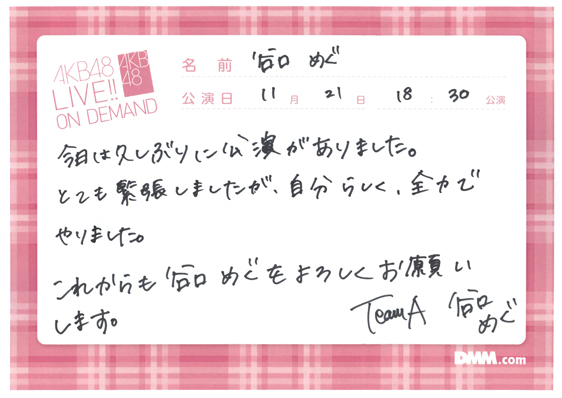 AKB48
LIVE!!
ON DEMAND
AKB
48
名前 谷口 めぐ
公演日 11月 21日 18:30 公演
今日は久しぶりに公演がありました。
とても緊張しましたが、自分らしく、全力で
やりました。
これからも谷口めぐをよろしくお願い
します。
TeamA 谷口
めぐ
DMM.com